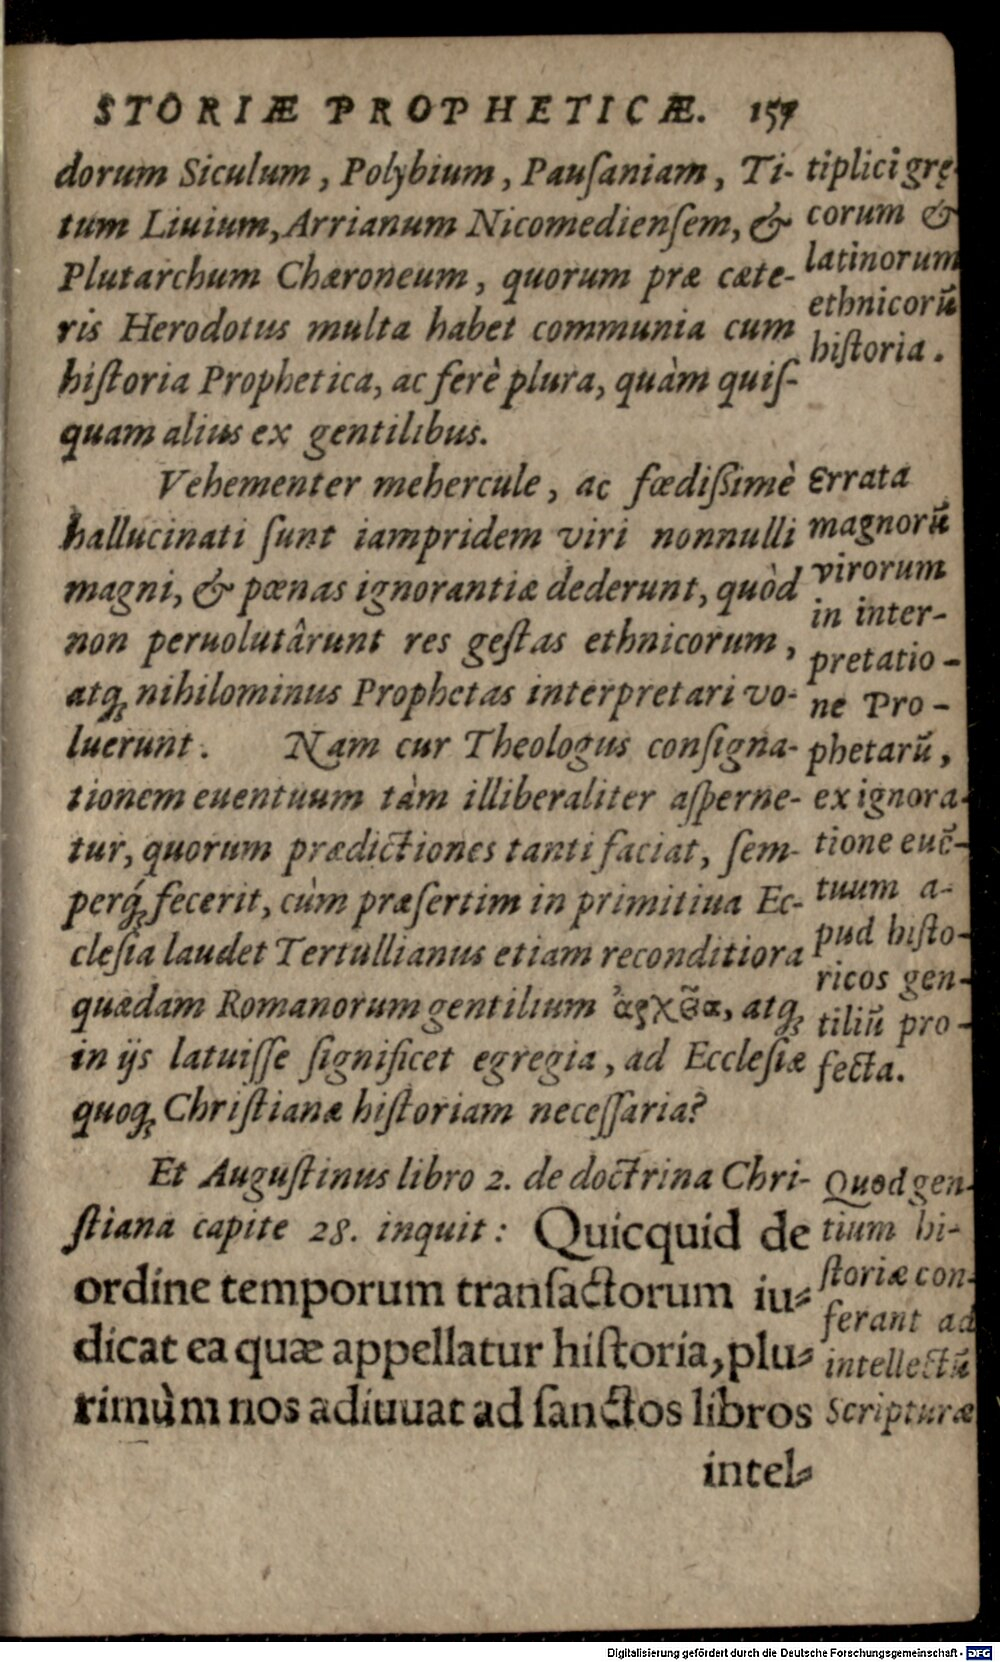 STORIÆ PROPHETICÆ. 157
dorum Siculum, Polybium, Pauſaniam, Ti-
tum Liuium, Arrianum Nicomedienſem, &
Plutarchum Chæroneum, quorum præ cæte-
ris Herodotus multa habet communia cum
hiſtoria Prophetica, ac ferè plura, quàm quiſ-
quam alius ex gentilibus.
tiplici grę-
corum &
latinorum
ethnicorũ
hiſtoria.
Vehementer mehercule, ac fœdißimè
hallucinati ſunt iampridem viri nonnulli
magni, & pœnas ignorantiæ dederunt, quòd
non peruolutârunt res geſtas ethnicorum,
atq; nihilominus Prophetas interpretari vo-
luerunt. Nam cur Theologus conſigna-
tionem euentuum tàm illiberaliter aſperne-
tur, quorum prædictiones tanti faciat, ſem-
perq́; fecerit, cùm præſertim in primitiua Ec-
cleſia laudet Tertullianus etiam reconditiora
quædam Romanorum gentilium ἀρχεῖα, atq;
in ijs latuiſſe ſignificet egregia, ad Eccleſiæ
quoq; Chriſtianæ hiſtoriam neceſſaria?
Errata
magnorũ
virorum
in inter-
pretatio-
ne Pro-
phetarũ,
ex ignora-
tione euẽ-
tuum a-
pud hiſto-
ricos gen-
tiliũ pro-
fecta.
Et Auguſtinus libro 2. de doctrina Chri-
ſtiana capite 28. inquit: Quicquid de
ordine temporum tranſactorum iu-
dicat ea quæ appellatur hiſtoria, plu-
rimùm nos adiuuat ad ſanctos libros
intel-
Quod gen-
tium hi-
ſtoriæ con-
ferant ad
intellectũ
Scripturæ
Digitalisierung gefördert durch die Deutsche Forschungsgemeinschaft - DFG